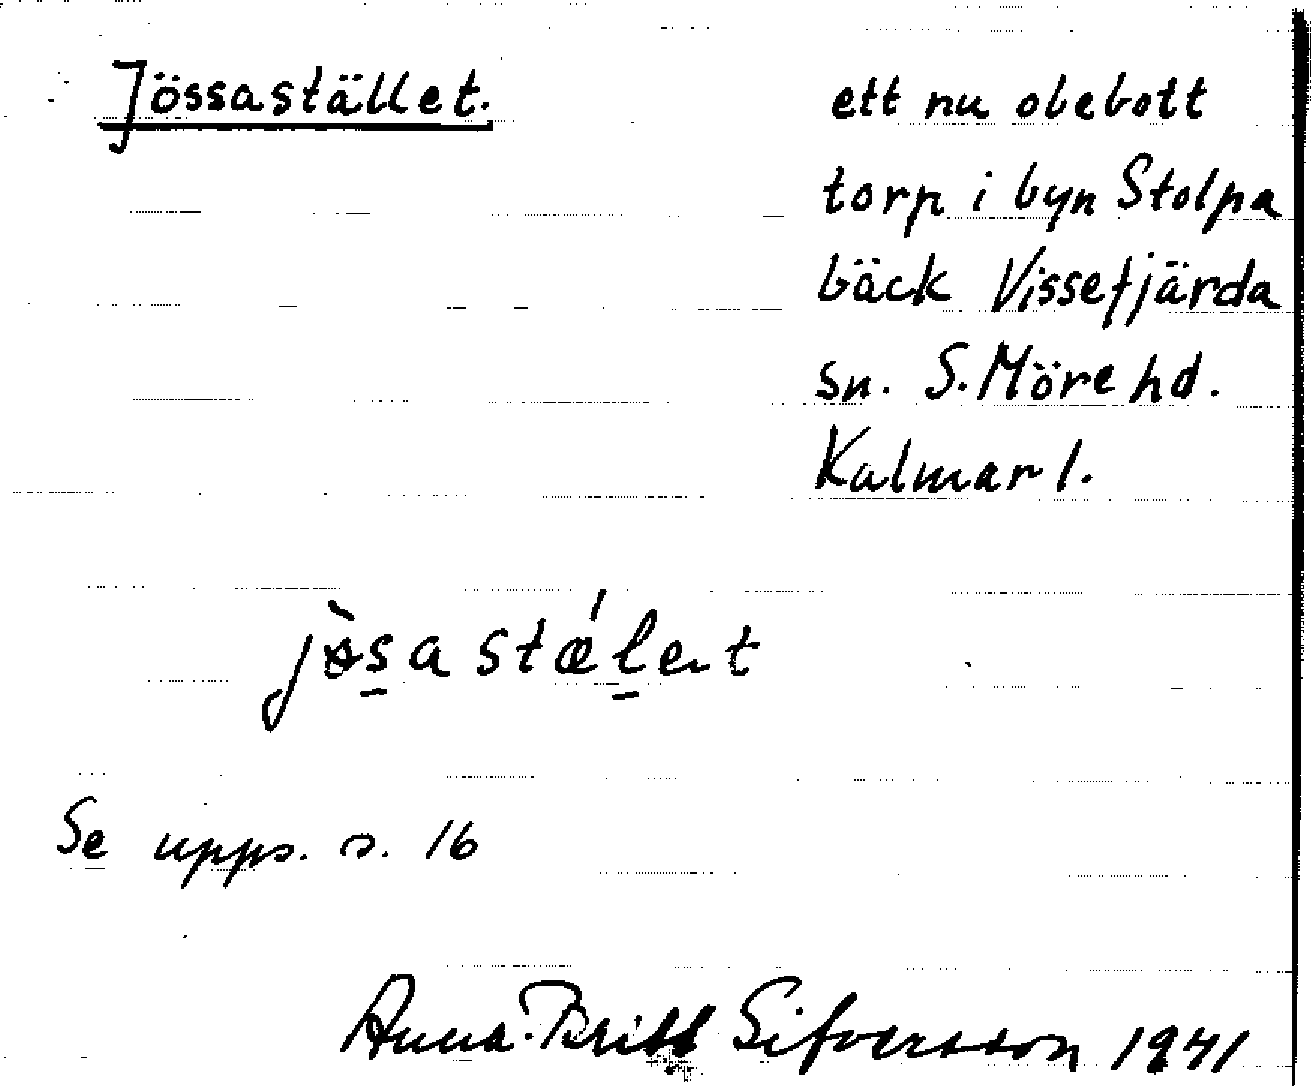 Jössastället.
ett nu obebott
torp i byn Stolpa
bäck Vissefjärda
sn. S. Möre hd.
Kalmar l.
jòsastǽlet
Se upps. s. 16
Anna-Britt Sifversson 1941